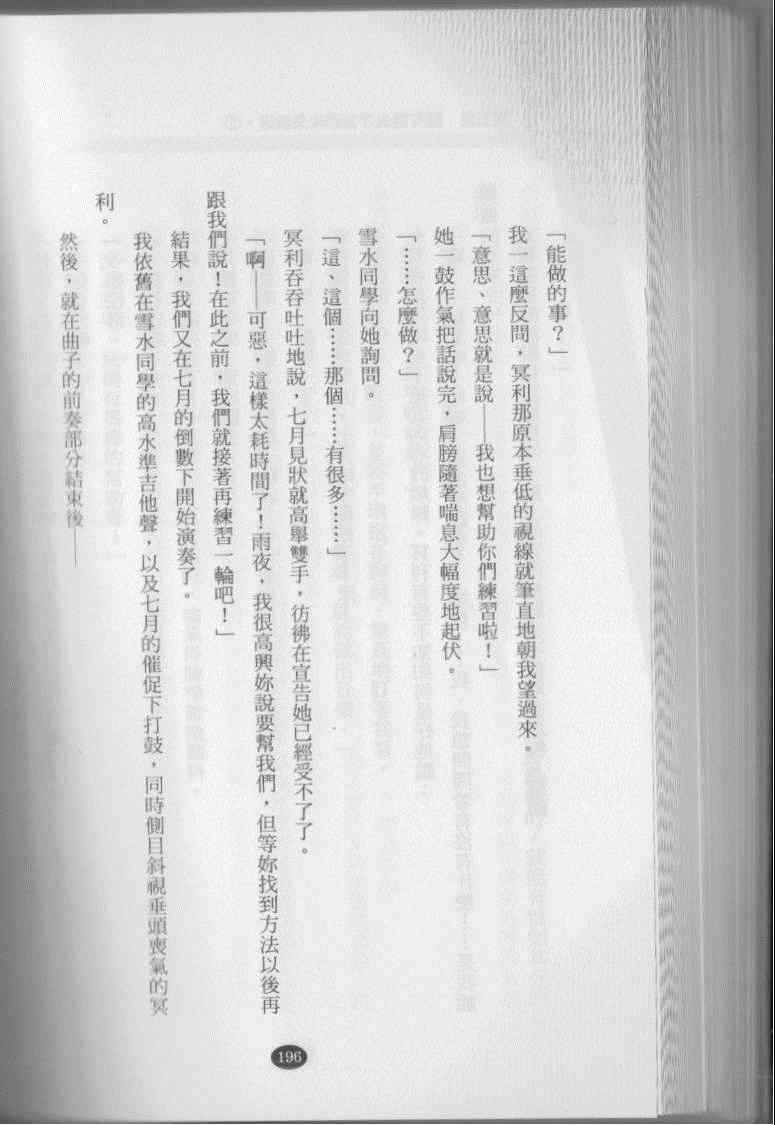 「能做的事？」
我一這麼反問，冥利那原本垂低的視線就筆直地朝我望過來。
「意思、意思就是說——我也想幫助你們練習啦！」
她一鼓作氣把話說完，肩膀隨著喘息大幅度地起伏。
「……怎麼做？」
雪水同學向她詢問。
「這、這個……那個……有很多……」
冥利吞吞吐吐地說，七月見狀就高舉雙手，彷彿在宣告她已經受不了了。
「啊——可惡，這樣太耗時間了！雨夜，我很高興妳說要幫我們，但等妳找到方法以後再
跟我們說！在此之前，我們就接著再練習一輪吧！」
結果，我們又在七月的倒數下開始演奏了。
我依舊在雪水同學的高水準吉他聲，以及七月的催促下打鼓，同時側目斜視垂頭喪氣的冥
利。
然後，就在曲子的前奏部分結束後——
196